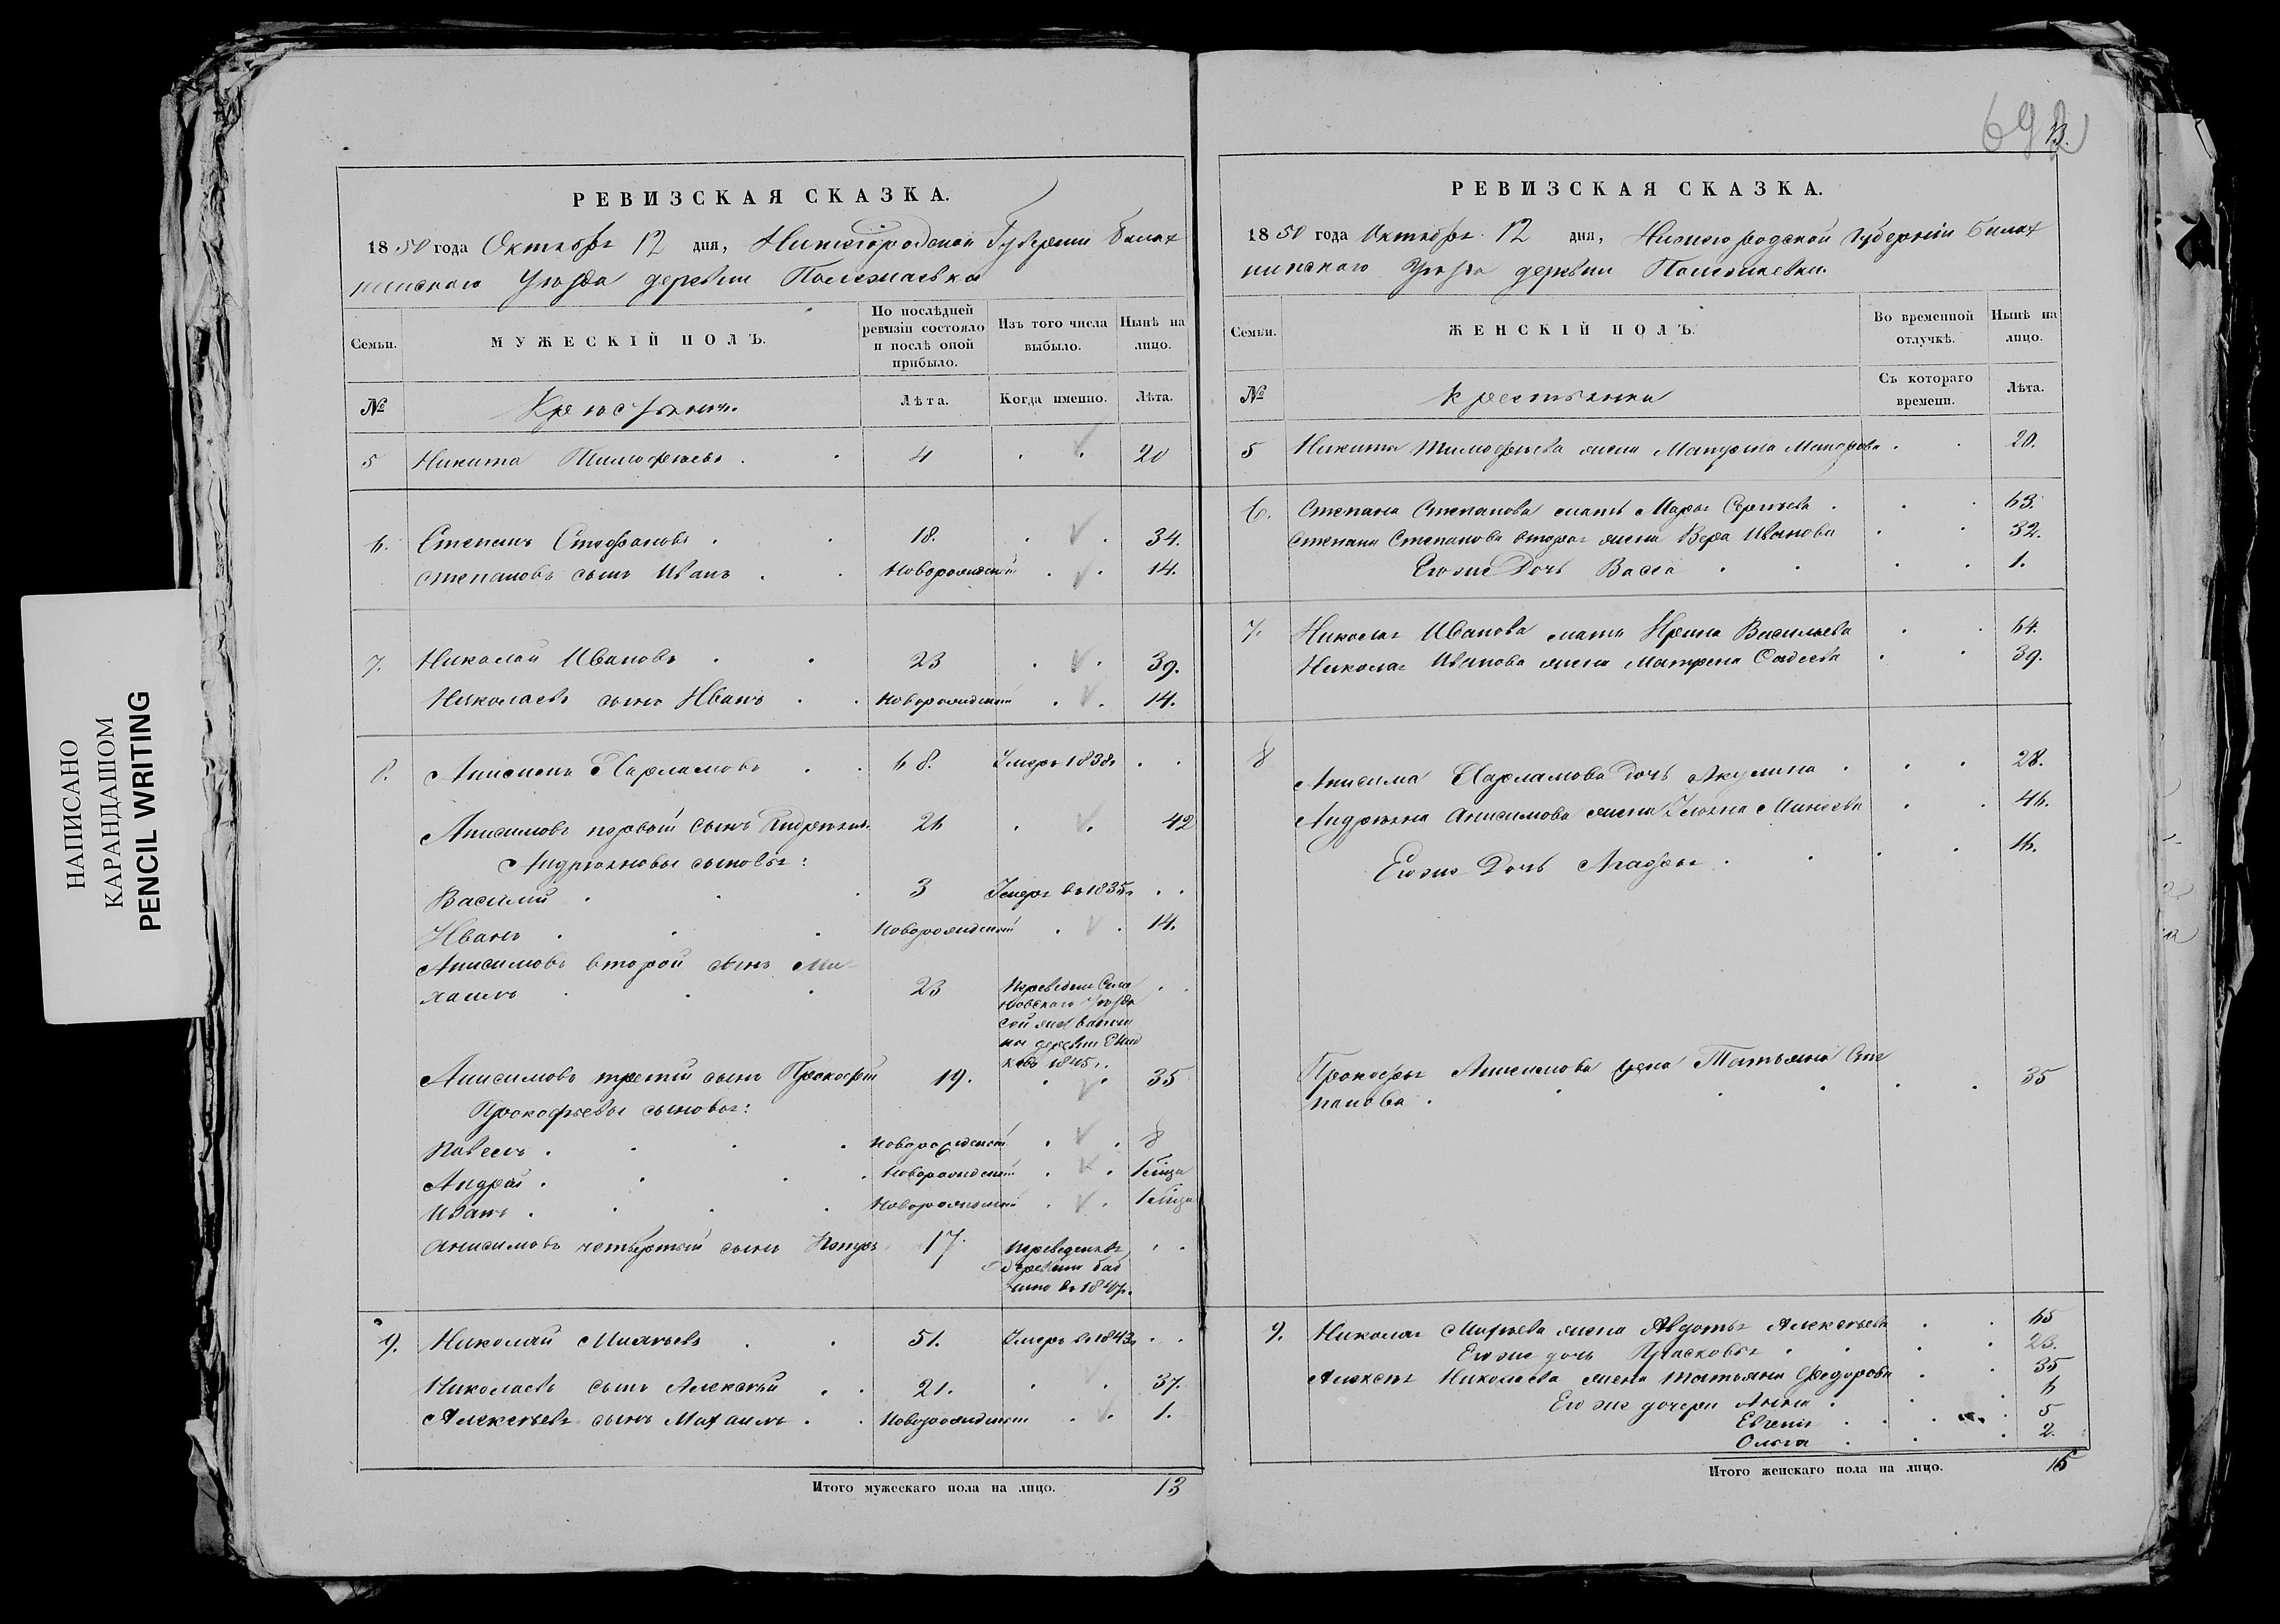 692
13.
НАПИСАНО
КАРАНДАШОМ
PENCIL WRITING
РЕВИЗСКАЯ СКАЗКА.
1850 года Октября 12 дня, Нижегородской Губернии Балах
нинскаго Уезда деревни Полежаевки
Семьи.
МУЖЕСКІЙ ПОЛЪ.
По послѣдней
ревизіи состояло
и послѣ оной
прибыло.
Изъ того числа
выбыло.
Нынѣ на
лицо.
№
Крестьяне.
Лѣта.
Когда именно.
Лѣта.
5 Никита Тимофеевъ . . 4 . . 20
6. Степанъ Стефановъ . . 18. . . 34.
Степановъ сынъ Иванъ . . Новорожденный . . 14.
7. Николай Ивановъ . . 23 . . 39.
Николаевъ сынъ Иванъ . . Новорожденный . . 14.
8. Анисимъ Харламовъ . . 68. Умеръ 1838 . .
Анисимовъ первый сынъ Андреянъ 26 . . 42
Андреяновы сыновья:
Василий . . . 3 Умеръ въ 1835 . .
Иванъ . . . Новорожденный . . 14.
Анисимовъ второй сынъ Ми-
хаилъ . . . 23 . .
деревни
1845
Анисимовъ третий сынъ Прокофей 19. . . 35
Прокофьевы сыновья:
Павелъ . . . Новорожденный . . 8
Андрей . . . Новорожденный . .
Иванъ . . . Новорожденный . .
Анисимовъ четвертый сынъ Петръ 17. Переведенъ в . .
деревню
9. Николай Матвеевъ . . 51. Умеръ въ 1843 . .
Николаевъ сынъ Алексей . . 21. . . 37.
Алексеевъ сынъ Михаилъ . . Новорожденный . . 1.
Итого мужескаго пола на лицо. 13
РЕВИЗСКАЯ СКАЗКА.
1850 года Октября 12 дня, Нижегородской Губерніи Балах
нинскаго Уезда деревни Полежаевки.
Семьи.
ЖЕНСКІЙ ПОЛЪ.
Во временной
отлучкѣ.
Нынѣ на
лицо.
№
Крестьянки
Съ котораго
времени.
Лѣта.
5 Никиты Тимофеева жена Матрена . . 20.
6. Степана Степанова мать Марья Сергеева . . . 63.
Степана Степанова вторая жена Вера Иванова . . 32.
Его же Дочь Васса . . . . 1.
7. Николая Иванова мать Ирина Васильева . . 64.
Николая Иванова жена Матрена Фадеева . . 39.
8 Анисима Харламова Дочь Акулина . . . 28.
Андреяна Анисимова жена Ульяна Минеева . . 46.
Его же Дочь Агафья . . . . 16.
Прокофья Анисимова жена Татьяна Сте
панова . . . . . 35
9. Николая Матвеева жена Авдотья Алексеева . . 65
Его же дочь Прасковья . . . . 23.
Алексея Николаева жена Татьяна Федорова . . 35
Его же дочери Анна . . . 6
Евгения . . . . 5
Ольга . . . 2.
Итого женскаго пола на лицо. 15